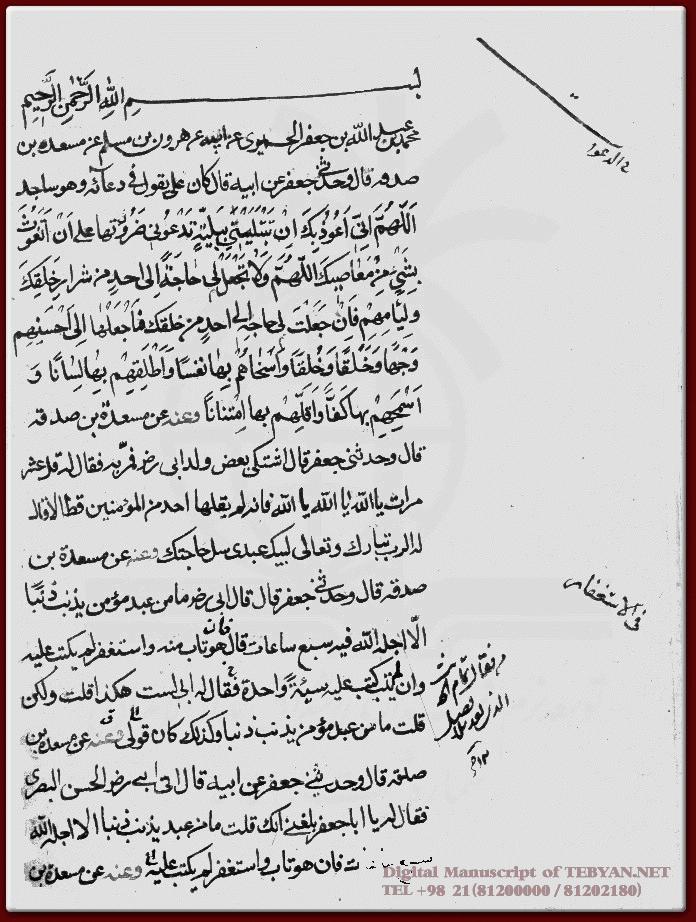 بسم الله الرحمن الرحيم
في الدعوات
محمد بن عبد الله بن جعفر الحميري عن ابيه عن هرون بن مسلم عن مسعدة بن
صدقه قال وحدثني جعفر عن ابيه قال كان علي يقول في دعائه وهو ساجد
اَللّهُمَّ اِنّي اَعُوذُ بِكَ اَنْ تَبْتَلِيَني بِبَلِيَّةٍ تَدْعُوني ضَرُورَتُها على اَنْ اَتَغَوَّثَ
بِشَيْءٍ مِنْ مَعَاصِيكَ اَللّهُمَّ وَلا تَجْعَلْ لي حاجَةً اِلى احدٍ من شرارِ خَلقِكَ
وَلِئَامِهِم فَاِنْ جَعَلْتَ لي حاجةً الى احدٍ من خلقك فاجعَلها اِلى اَحْسَنِهِم
وَجْهًا وَخَلْقًا وَخُلُقًا وَاَسْخاهُم بِها نَفسًا وَاَطْلَقِهِم بِها لِسانًا وَ
اَسْمَحِهِم بها كَفًّا وَاَقَلِّهِم بها اِمْتِنانًا وعنه عن مسعدة بن صدقه
قال وحدثني جعفر قال اشتكى بعض ولد ابي رض فمرّ به فقال له قل عشر
مرات يا الله يا الله يا الله فانه لم يقلها احد من المؤمنين قط الا قال
له الرب تبارك وتعالى لبيك عبدي سل حاجتك وعنه عن مسعدة بن
في الاستغفار
صدقه قال وحدثني جعفر قال قال ابي رض ما من عبد مؤمن يذنب ذنبًا
الّا اجله الله فيه سبع ساعات قال فان هو تاب منه واستغفر لم يكتب عليه
وان لم يتب كتب عليه سيئة واحدة فقال له ابي لست هكذا قلت ولكن
قلت ما من عبد مؤمن يذنب ذنبا وكذلك كان قولي وعنه عن مسعدة بن
صدقه قال وحدثني جعفر عن ابيه قال اتى ابي رض الحسن البصري
فقال له يا ابا جعفر بلغني انك قلت ما من عبد يذنب ذنبا الا اجله الله
سبع ساعات فان هو تاب واستغفر لم يكتب عليه وعنه عن مسعدة بن
Digital Manuscript of TEBYAN.NET
TEL +98 21(81200000 / 81202180)